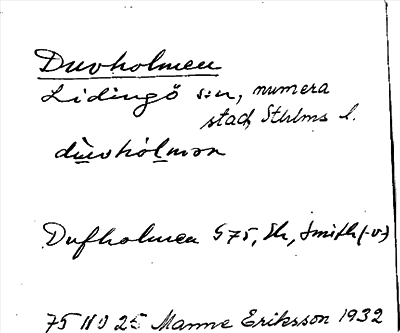 Duvholmen
Lidingö sn, numera
stad, Sthlms l.
dùvhólmən
Dufholmen G75, Sk, Smith (-v-)
75 NO 25 Manne Eriksson 1932